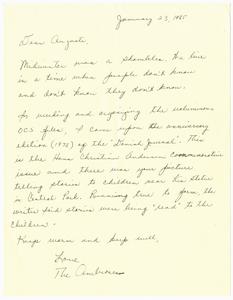 January 23, 1985
Dear Augusta,
Midwinter was a shambles. We live
in a time when people don't know
and don't know they don't know.
In weeding and organizing the voluminous
OCS files, I came upon the anniversary
edition (1975) of the "Danish Journal". This
is the Hans Christian Andersen Commemorative
issue and there was your picture
telling stories to children near his statue
in Central Park. Running true to form the
writer said stories were being "read" to the
children.
Keep warm and keep well,
Love,
The